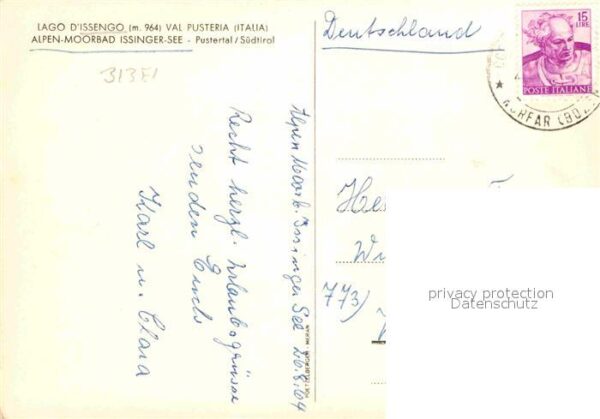 LAGO D'ISSENGO (m. 964) VAL PUSTERIA (ITALIA)
ALPEN-MOORBAD ISSINGER-SEE - Pustertal/Südtirol
3I3EI
Deutschland
15
LIRE
POSTE ITALIANE
Alpen Moorb. Issinger See 26.8.64
Recht herzl. Urlaubsgrüsse
senden Euch
Karl u. Clara
773)
privacy protection
Datenschutz